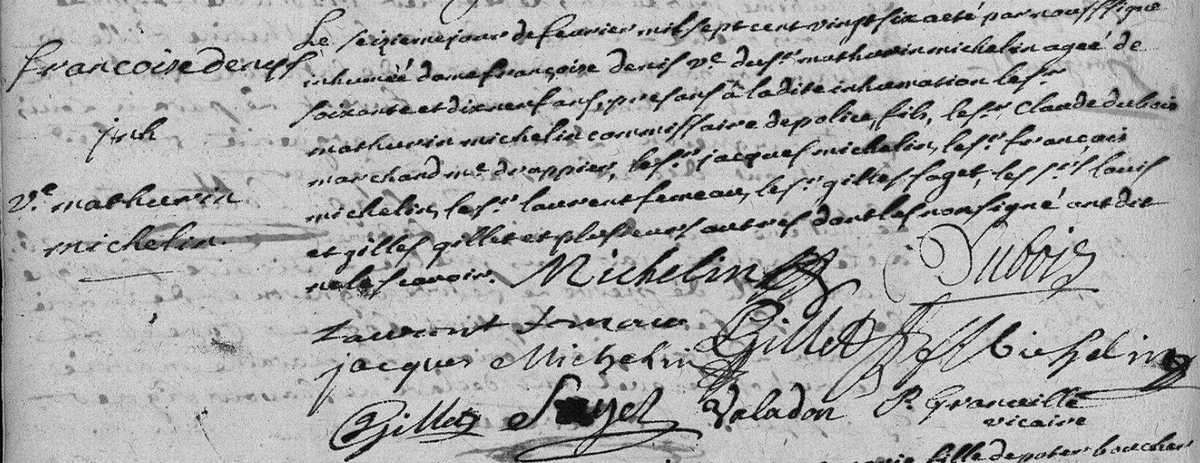 francoise denis
inh
Ve mathurin
michelin
Le seizieme jour de fevrier mil sept cent vingt six a eté par nous ssigne
inhumée dame françoise denis ve du sr mathurin michelin ageé de
soixante et dix neuf ans, presans â la dite inhumation le sr
mathurin michelin commissaire de police, fils, le sr Claude dubois
marchand md drappier, le sr jacques michelin, le sr francois
michelin, le sr laurent, le sr gilles saget, les srs louis
et gilles gillet et plusieurs autres, dont les non signé ont dit
ne le scavoir. Michelin Dubois
Laurent
jacques Michelin Gillet ff Michelin
Gillet Saget Valadon P. Granville
vicaire
fille de poter boucher